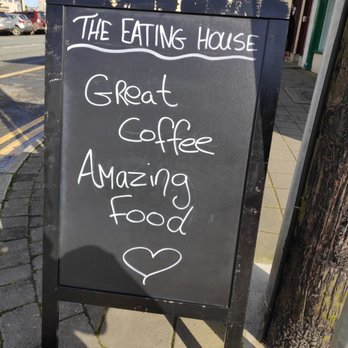 THE EATING HOUSE
Great
Coffee
Amazing
Food